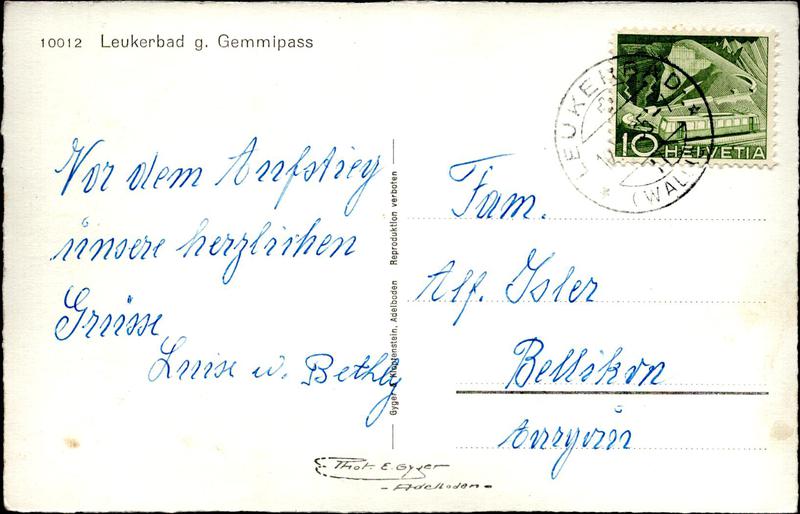 10012 Leukerbad g. Gemmipass
Vor dem Aufstieg
unsere herzlichen
Grüsse
Luise u. Bethly
Gyger & Klopfenstein, Adelboden Reproduktion verboten
LEUKERBAD
(WALLIS)
10 HELVETIA
Fam.
Alf. Isler
Bellikon
Aargau
Phot. E. Gyger
- Adelboden -